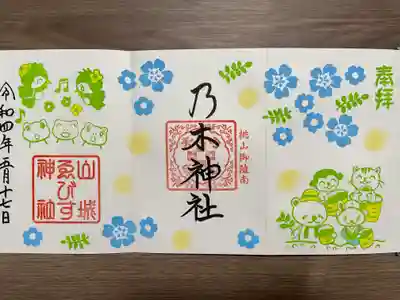 奉拝
桃山御陵南
乃木神社
山城
ゑびす
神社
令和四年五月十七日